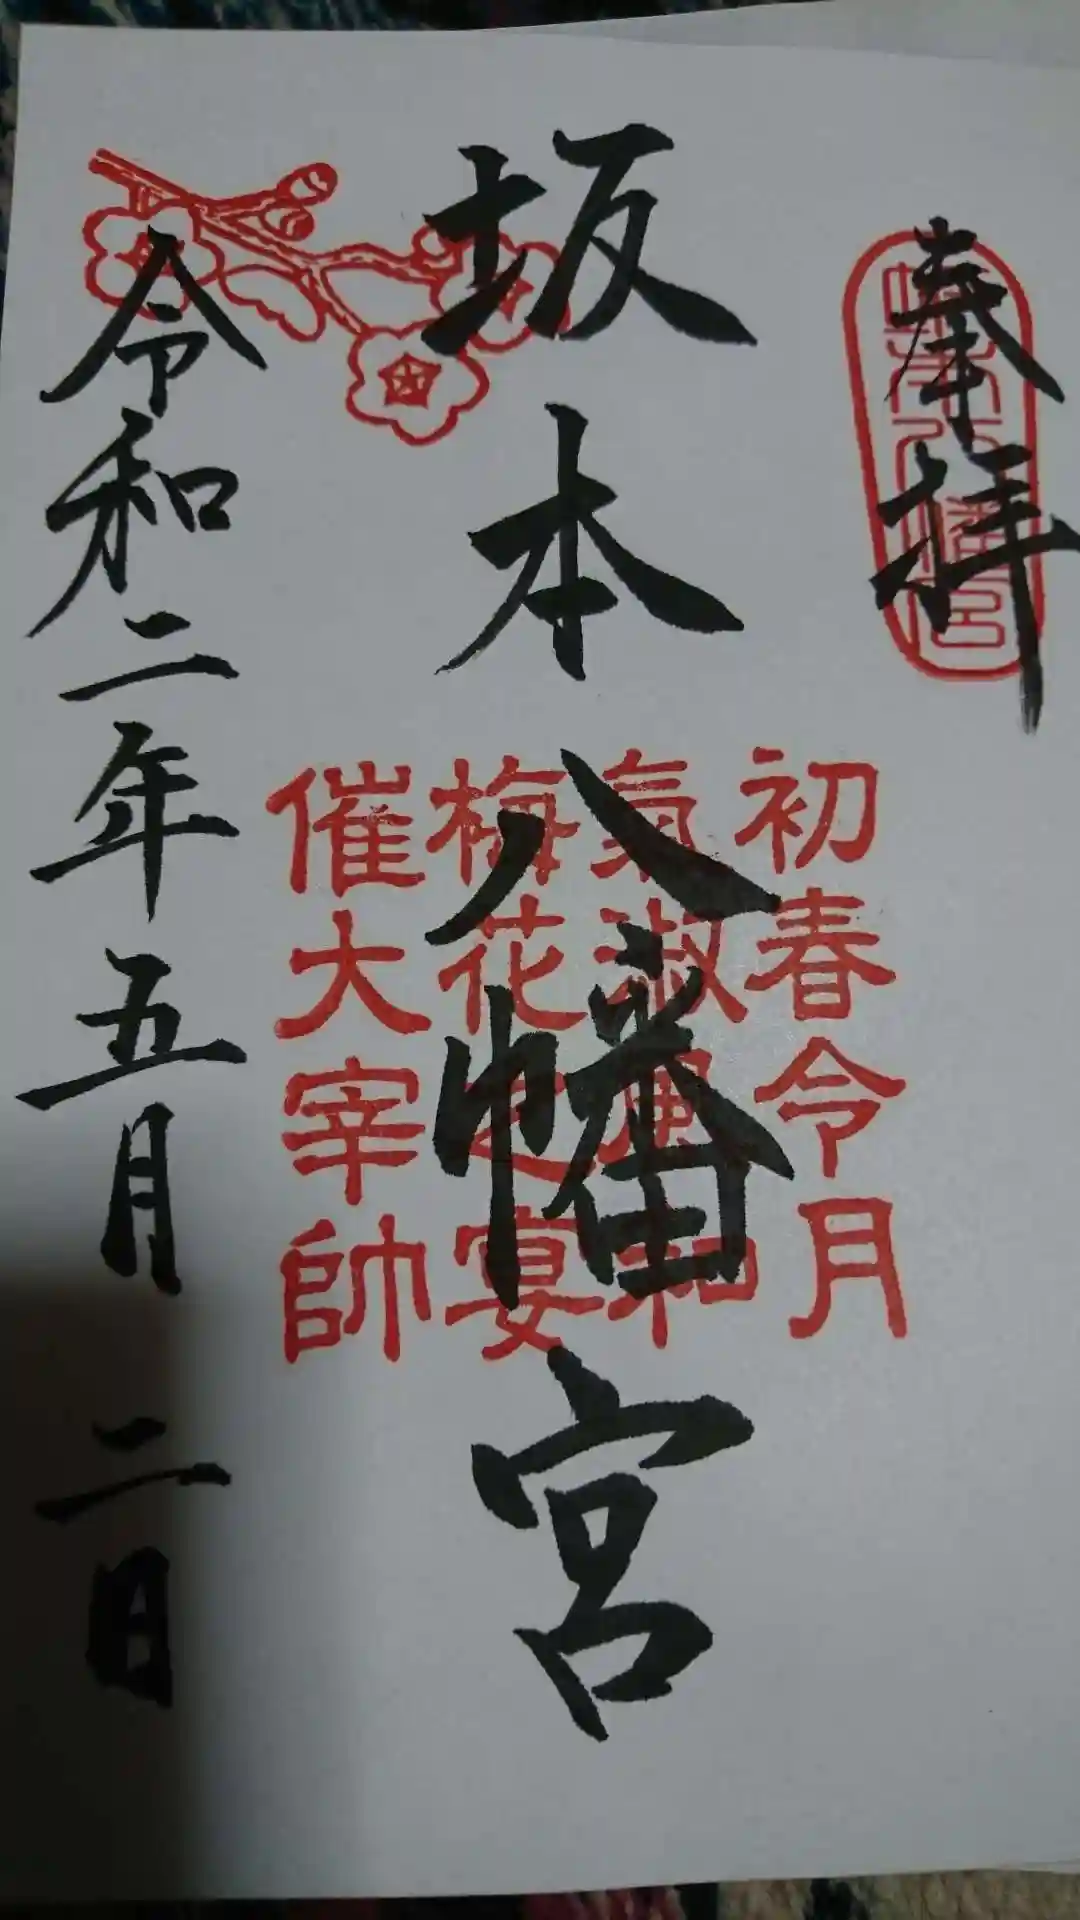 奉拝
坂本八幡宮
坂本八幡宮
初春令月
氣淑風和
梅花之宴
催大宰帥
令和二年五月二日